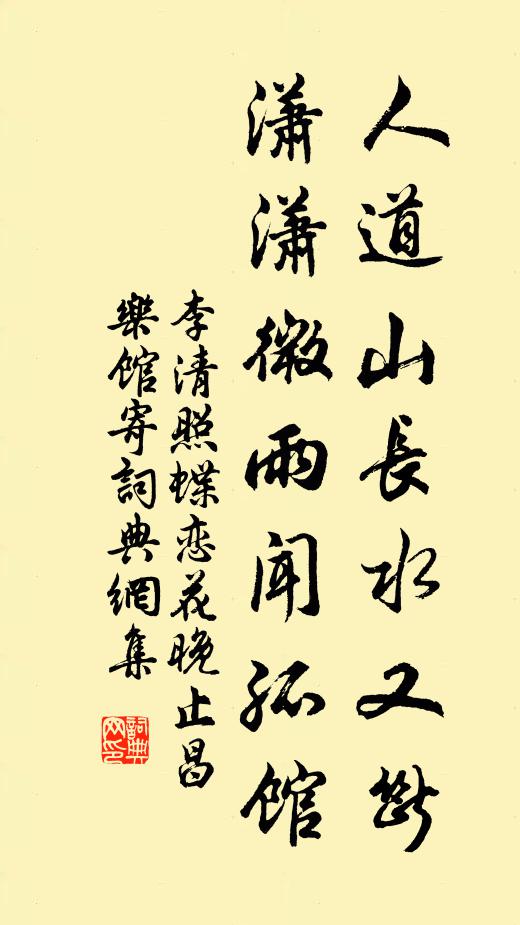 人道山長水又斷
瀟瀟微雨聞孤館
李清照蝶恋花晚止昌
樂館寄詞典網集
詞典
网印